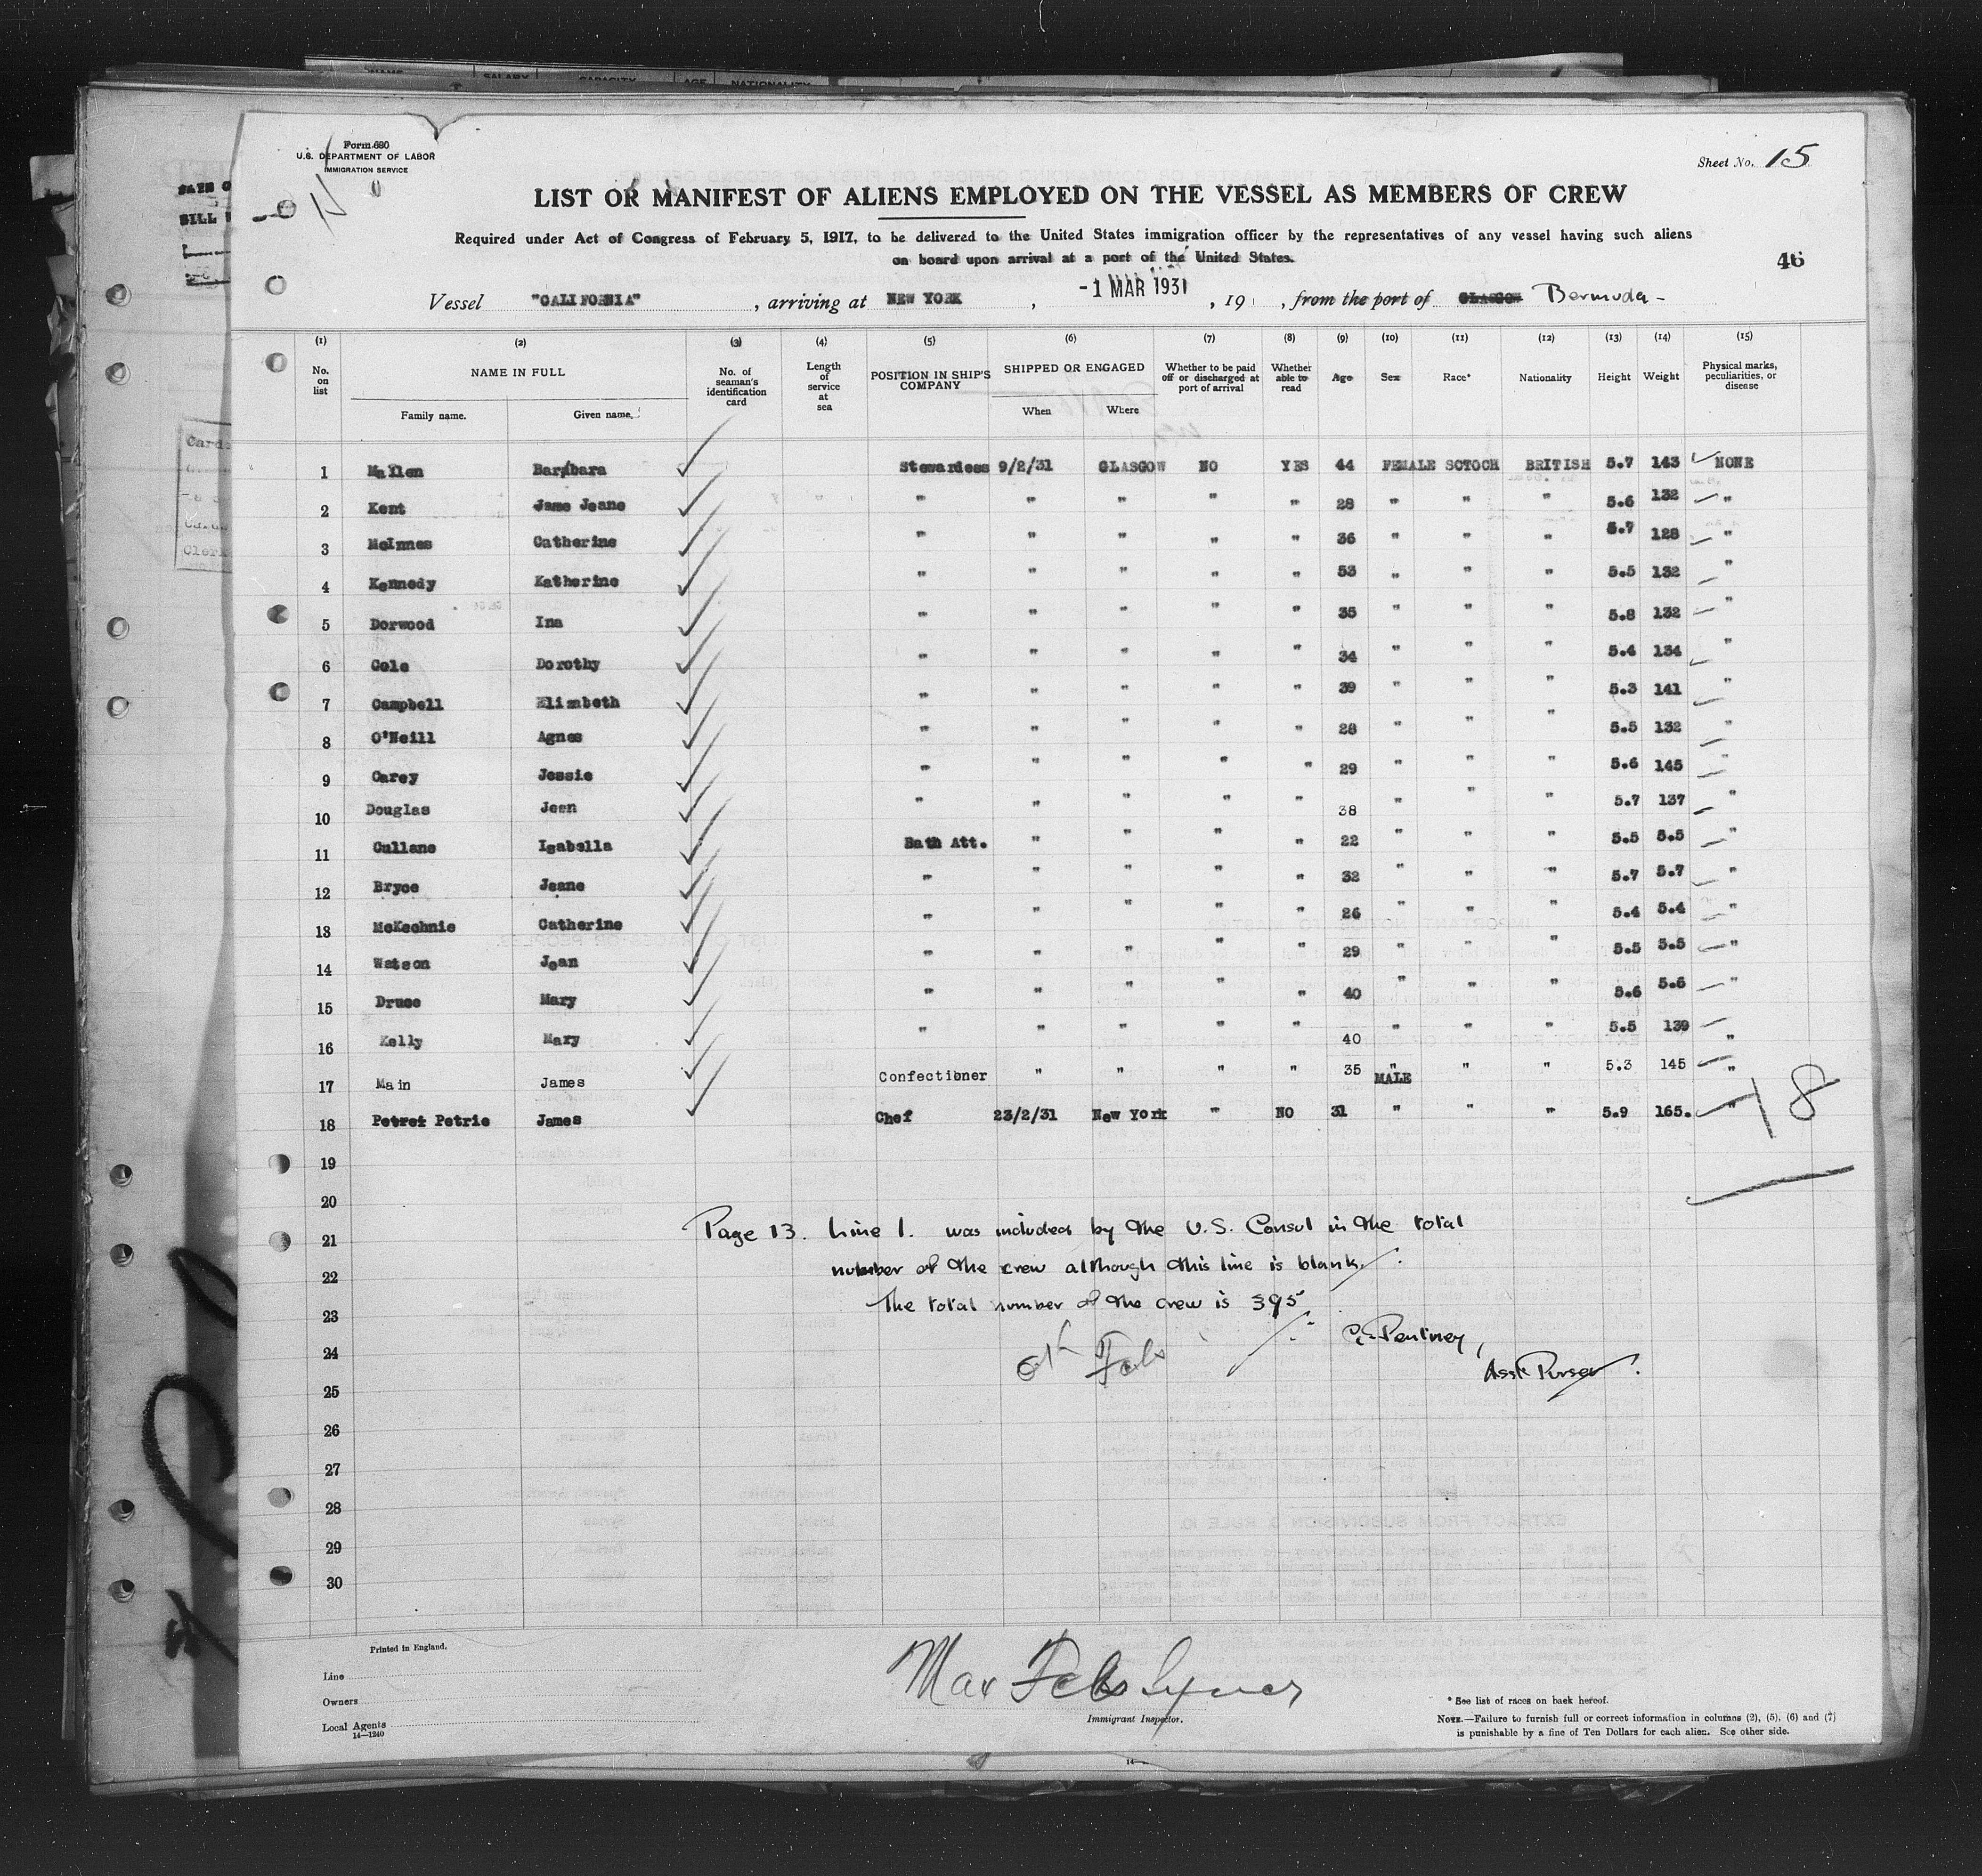 NAME SALARY CAPACITY AGE NATIONALITY
Form 680
U.S. DEPARTMENT OF LABOR
IMMIGRATION SERVICE
Sheet No. 15
LIST OR MANIFEST OF ALIENS EMPLOYED ON THE VESSEL AS MEMBERS OF CREW
Required under Act of Congress of February 5, 1917, to be delivered to the United States immigration officer by the representatives of any vessel having such aliens
on board upon arrival at a port of the United States.
46
Vessel "CALIFORNIA", arriving at NEW YORK, -1 MAR 1931, 19 , from the port of GLASGOW Bermuda -
(1) (2) (3) (4) (5) (6) (7) (8) (9) (10) (11) (12) (13) (14) (15)
No. on list NAME IN FULL No. of seaman's identification card Length of service at sea POSITION IN SHIP'S COMPANY SHIPPED OR ENGAGED Whether to be paid off or discharged at port of arrival Whether able to read Age Sex Race* Nationality Height Weight Physical marks, peculiarities, or disease
Family name. Given name. When Where
1 Mallen Barbara Stewardess 9/2/31 GLASGOW NO YES 44 FEMALE SCTOCH BRITISH 5.7 143 NONE
2 Kent Jame Jeane " " " " " 28 " " " 5.6 132 "
3 McInnes Catherine " " " " " 36 " " " 5.7 128 "
4 Kennedy Katherine " " " " " 53 " " " 5.5 132 "
5 Dorwood Ina " " " " " 35 " " " 5.8 132 "
6 Cole Dorothy " " " " " 34 " " " 5.4 134 "
7 Campbell Elizabeth " " " " " 39 " " " 5.3 141 "
8 O'Neill Agnes " " " " " 28 " " " 5.5 132 "
9 Carey Jessie " " " " " 29 " " " 5.6 145 "
10 Douglas Jeen " " " " " 38 " " " 5.7 137 "
11 Cullane Isabella Bath Att. " " " " 22 " " " 5.5 5.5 "
12 Bryce Jeane " " " " " 32 " " " 5.7 5.7 "
13 McKechnie Catherine " " " " " 26 " " " 5.4 5.4 "
14 Watson Jean " " " " " 29 " " " 5.5 5.5 "
15 Druce Mary " " " " " 40 " " " 5.6 5.6 "
16 Kelly Mary " " " " " 40 " " " 5.5 139 "
17 Main James Confectioner " " " " 35 " MALE " " 5.3 145 "
18 Petrei Petrie James Chef 23/2/31 New York " NO 31 " " " 5.9 165. "
18
19
20
21
22
23
24
25
26
27
28
29
30
Page 13. Line 1. was included by the U.S. Consul in the total
number of the crew although this line is blank.
The total number of the crew is 395
C. Pentney,
Asst Purser.
Printed in England.
Line
Owners
Local Agents
14—1240
Immigrant Inspector.
* See list of races on back hereof.
NOTE.—Failure to furnish full or correct information in columns (2), (5), (6) and (7)
is punishable by a fine of Ten Dollars for each alien. See other side.